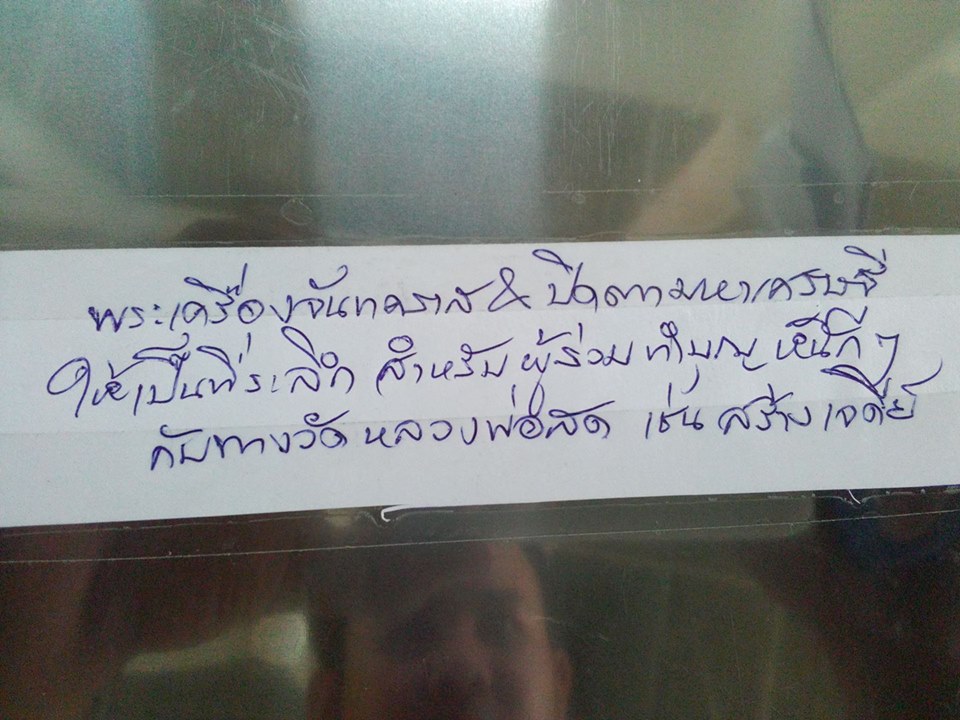 พระเครื่องจันทคราส & ปิดตามหาเศรษฐี
ให้เป็นที่ระลึก สำหรับผู้ร่วมทำบุญ ๆ
กับทางวัดหลวงพ่อสด เช่น สร้างเจดีย์